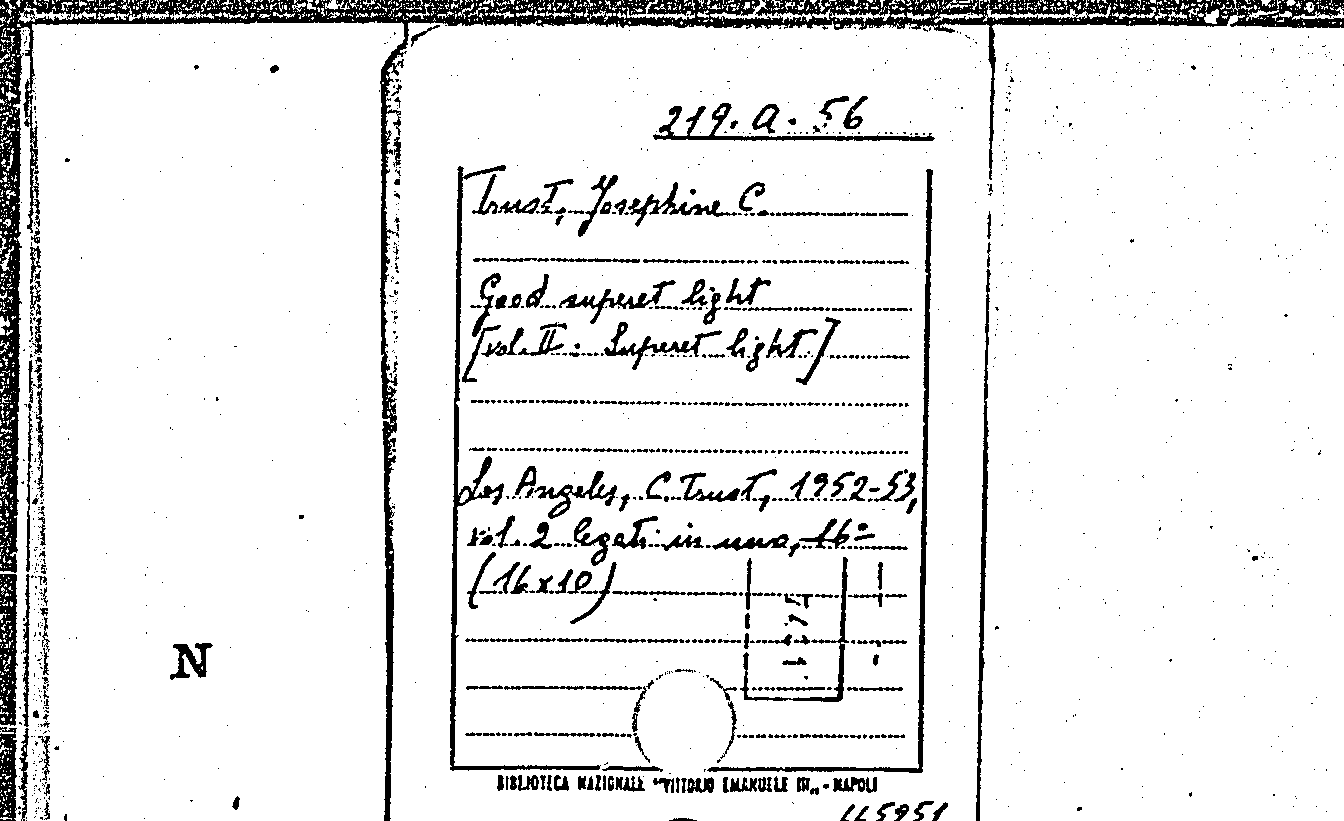 219. A. 56
Trust, Josephine C.
Good superet light
[vol. II: Superet light.]
Los Angeles, C. Trust, 1952-53,
vol. 2 legati in uno, 16°
(16x10)
N
BIBLIOTECA NAZIONALE "VITTORIO EMANUELE III„ - NAPOLI